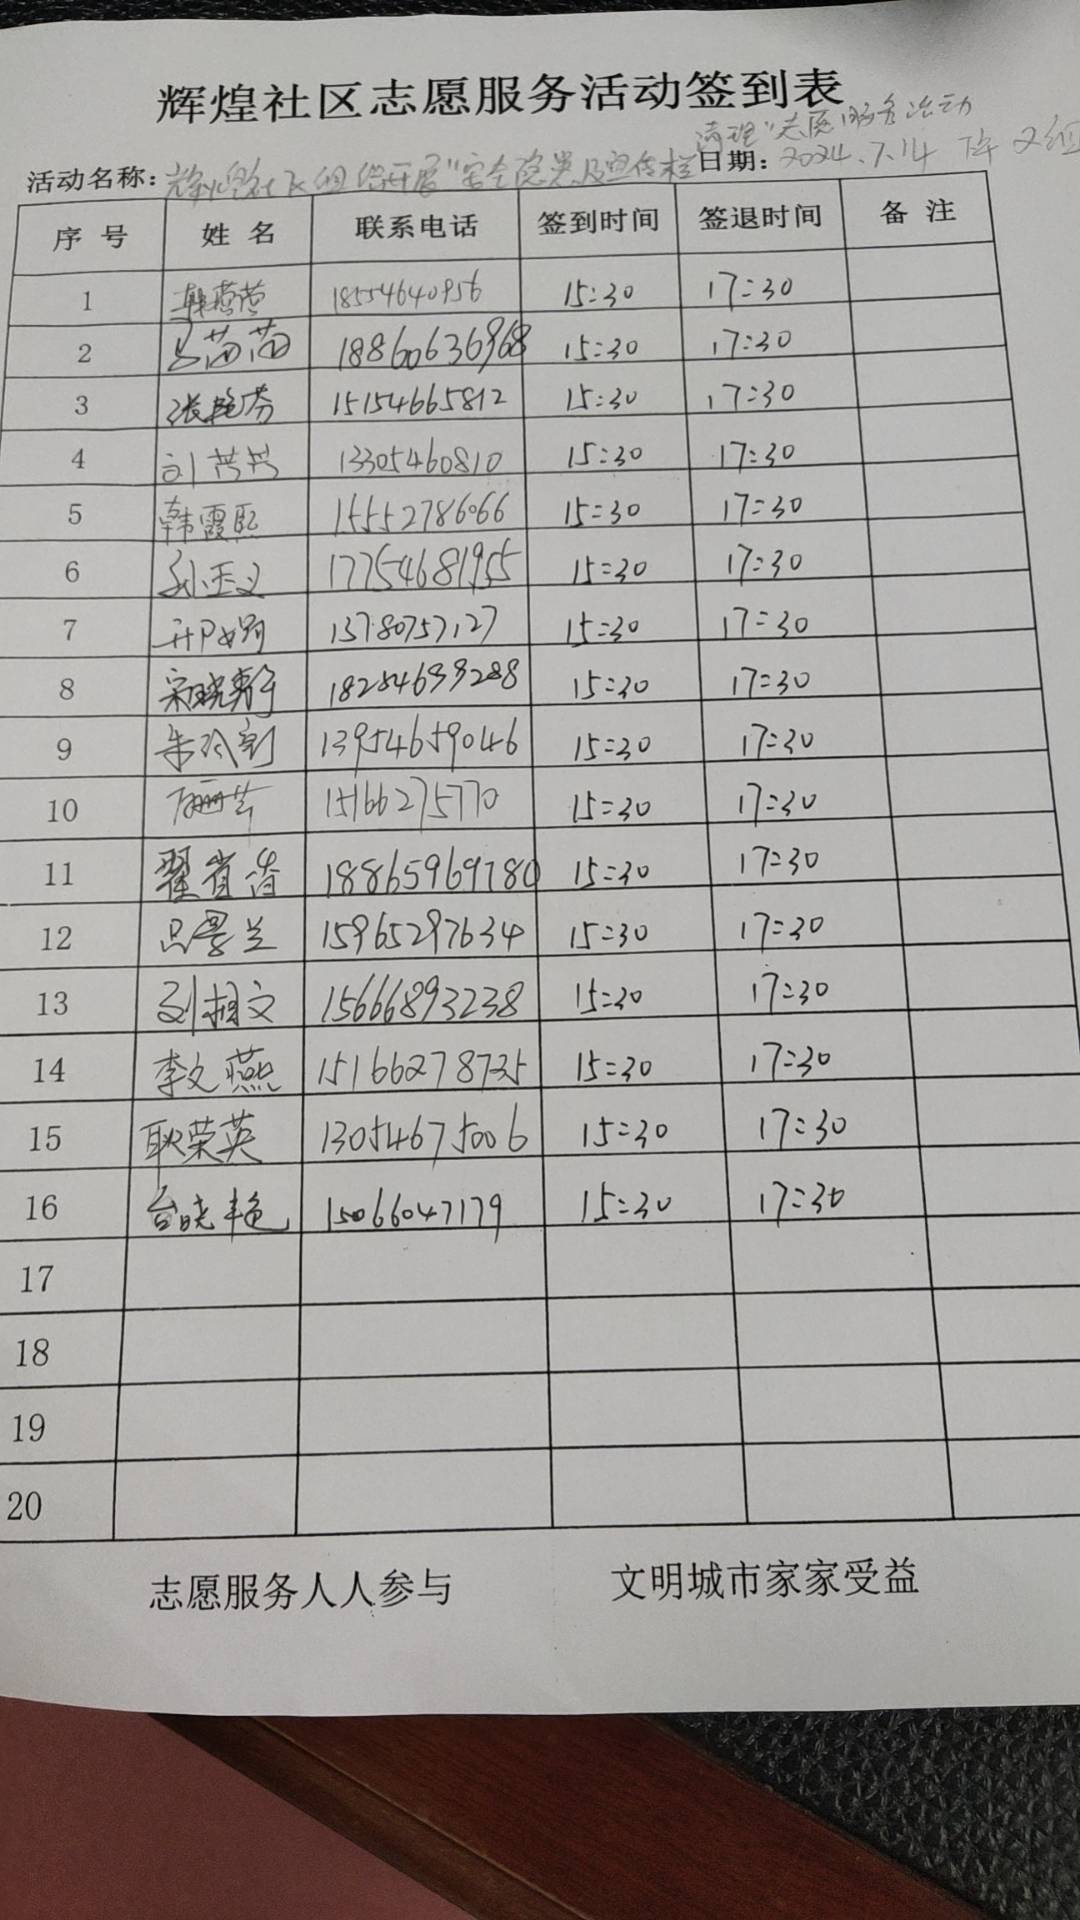 辉煌社区志愿服务活动签到表
清理"志愿服务活动
活动名称：辉煌社区组织开展"安全隐患及宣传栏 日期：2024.7.14 下午
序号 姓名 联系电话 签到时间 签退时间 备注
1 18554640956 15:30 17:30
2 苗苗 18860636968 15:30 17:30
3 张艳芬 15154665812 15:30 17:30
4 刘芳芳 13305460810 15:30 17:30
5 韩霞 15552786066 15:30 17:30
6 孙玉义 17754681955 15:30 17:30
7 13780757127 15:30 17:30
8 宋晓静 15:30 17:30
9 朱 13954659046 15:30 17:30
10 15166275770 15:30 17:30
11 翟省 18865969780 15:30 17:30
12 吕景兰 15965297634 15:30 17:30
13 刘相文 15666893238 15:30 17:30
14 李文燕 15166278735 15:30 17:30
15 耿荣英 13054675006 15:30 17:30
16 台晓艳 15066047179 15:30 17:30
17
18
19
20
志愿服务人人参与 文明城市家家受益